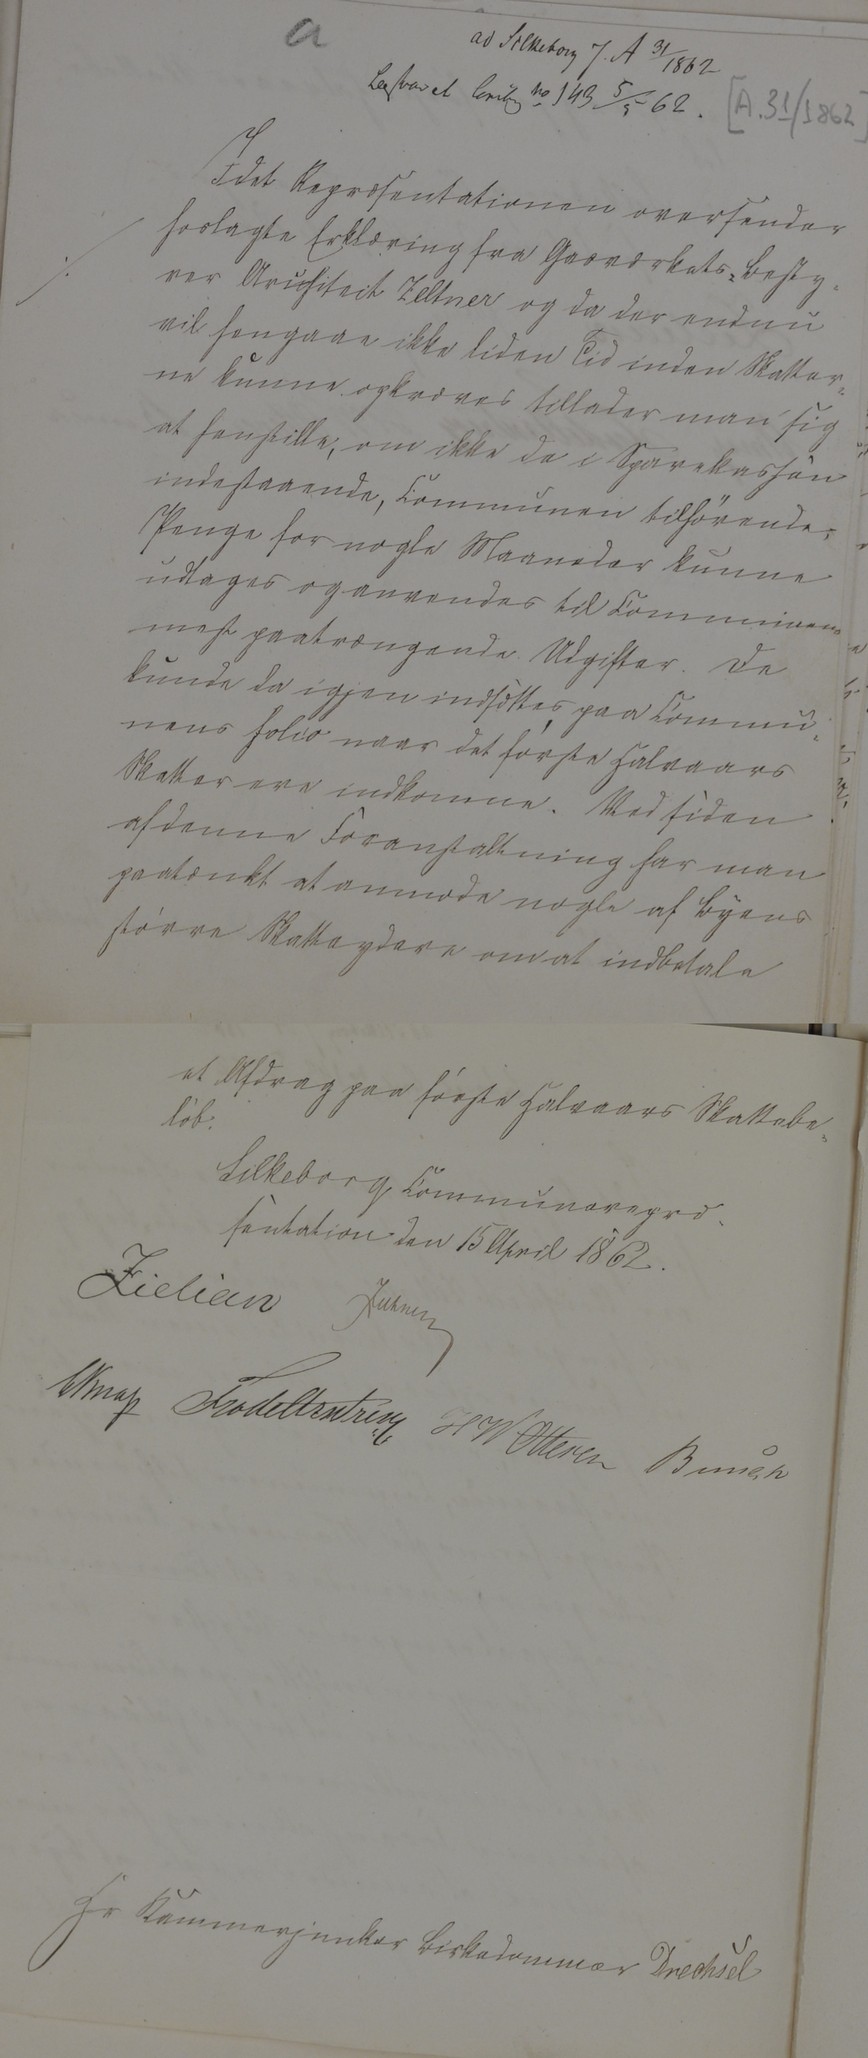 a
ad Silkeborg J. A 31/1862
Besvaret No 143 5/5 62. [A.31/1862]
Idet Repræsentationen oversender
hoslagte Erklæring fra Gasværkets-Besty-
rer Architect Zeltner og da der endnu
vil hengaae ikke liden Tid inden Skatter-
ne kunne opkræves tillader man sig
at henstille, om ikke de i Sparekassen
indestaaende, Communen tilhørende,
Penge for nogle Maaneder kunne
udtages og anvendes til Communens
mest paatrængende Udgifter. De
kunde da igjen indsættes paa Commu-
nens Folio naar det første Halvaars
Skatter ere indkomne. Ved Siden
af denne Foranstaltning har man
paatænkt at anmode nogle af Byens
større Skatteydere om at indbetale
et Afdrag paa første Halvaars Skattebe-
løb.
Silkeborg Communerepræ-
sentation den 15 April 1862.
Zielian Zeltner
H W Otteren Bunch
Hr Kammerjunker Birkedommer Drechsel